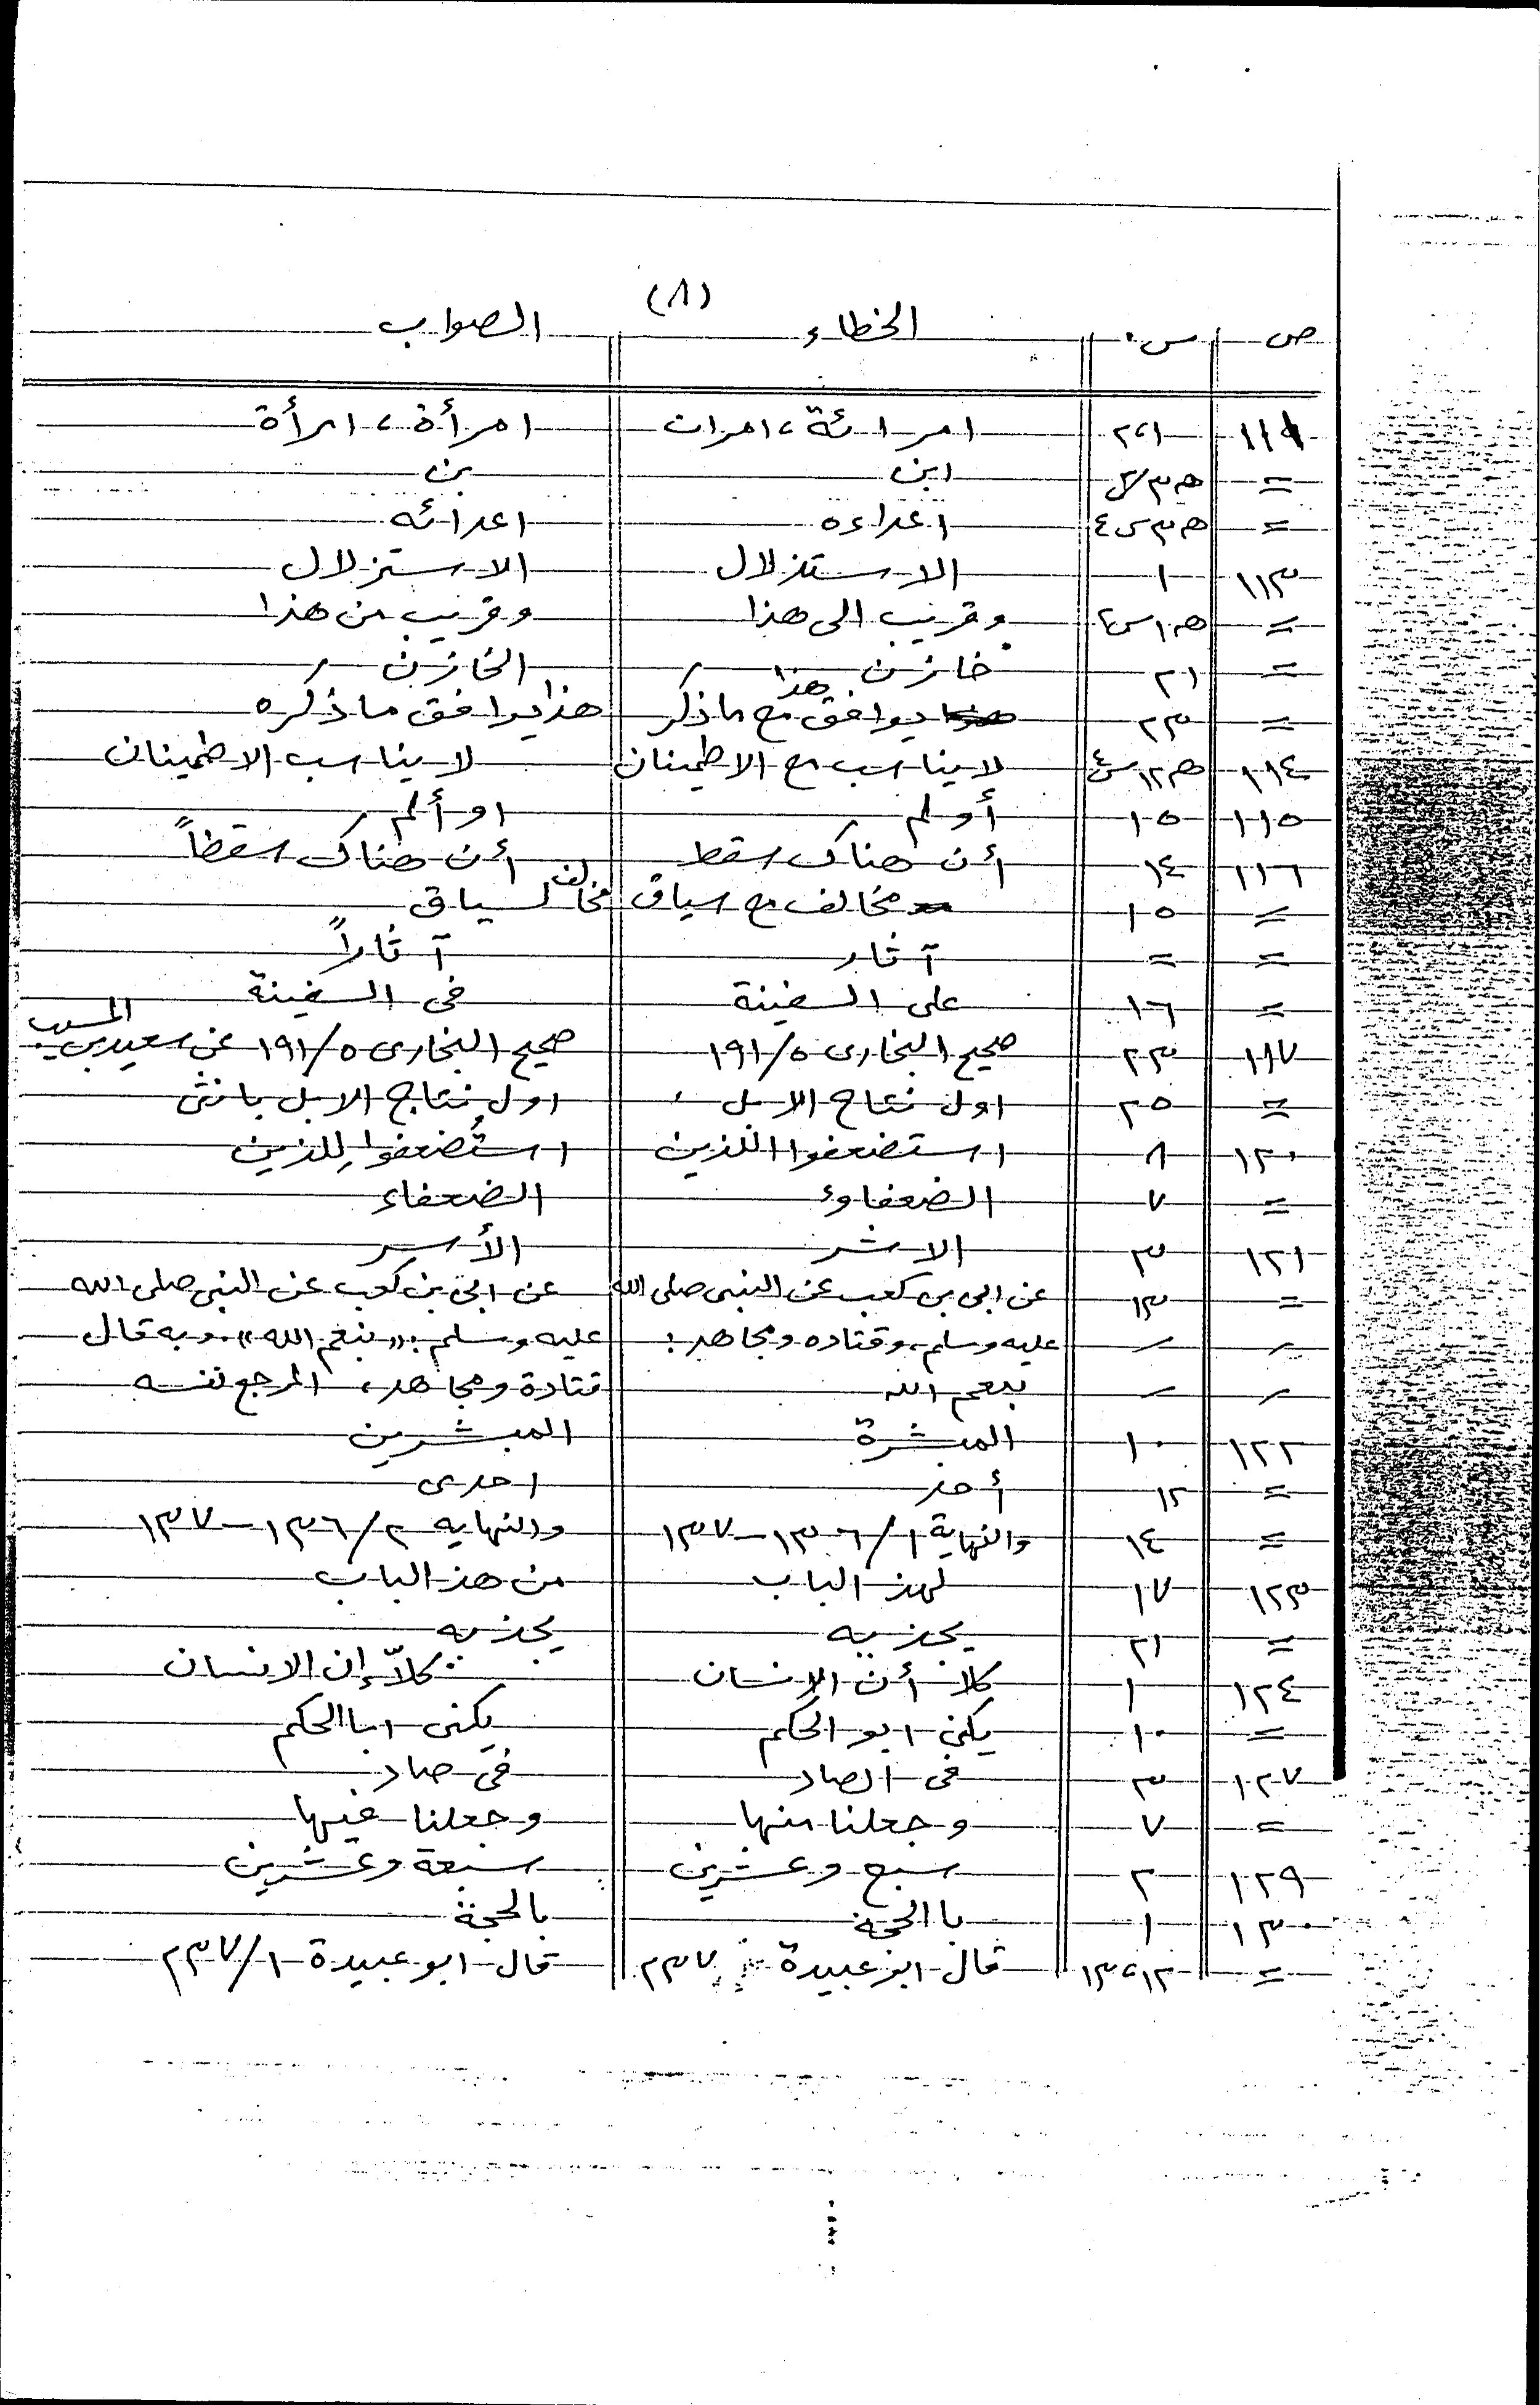 (٨)
ص س الخطاء الصواب
١١٩ ١،٢ امرائة، امرات امرأة، امرأة
= ھ٣ ابن بن
= ھ٣ س٤ اعداءه اعدائه
١١٣ ١ الاستذلال الاستزلال
= ھ١ س وقريب الى هذا وقريب من هذا
= ٢١ خازن الخازن
= ٢٣ هذا يوافق مع ما ذكر هذا يوافق ما ذكره
١١٤ ھ١٢ س٤ لا يناسب مع الاطمينان لا يناسب الاطمينان
١١٥ ١٥ أولم او ألم
١١٦ ١٤ أن هناك سقط أن هناك سقطاً
= ١٥ مخالف مع سياق مخالف لسياق
= = آثار آثاراً
= ١٦ على السفينة في السفينة
١١٧ ٢٣ صحيح البخارى ٥/١٩١ صحيح البخارى ٥/١٩١ عن سعيد بن المسيب
= ٢٥ اول نتاج الابل اول نتاج الابل بانثى
١٢٠ ٨ استضعفوا اللذين استُضعفوا للذين
= ٧ الضعفاوء الضعفاء
١٢١ ٣ الاشر الأسر
= ١٣ عن ابى بن كعب عن النبى صلى الله عن ابى بن كعب عن النبى صلى الله
عليه وسلم، وقتاده ومجاهد: عليه وسلم: «بنعم الله» وبه قال
بنعم الله قتادة ومجاهد، المرجع نفسه
١٢٢ ١٠ المبشرة المبشرين
= ١٢ أحد احدى
= ١٤ والنهاية ١/١٣٦-١٣٧ والنهايه ٢/١٣٦-١٣٧
١٢٣ ١٧ لهذ الباب من هذ الباب
= ٢١ يجزيه يجزيه
١٢٤ ١ كلا أن الانسان كلاّ إن الانسان
= ١٠ يكنى ابو الحكم يكنى ابا الحكم
١٢٧ ٣ فى الصاد فى صاد
= ٧ وجعلنا منها وجعلنا فيها
١٢٩ ٢ سبع وعشرين سبعة وعشرين
١٣٠ ١ با الحجة بالحجة
= ١٢،١٣ قال ابو عبيدة ٢٣٧ قال ابو عبيدة ١/٢٣٧